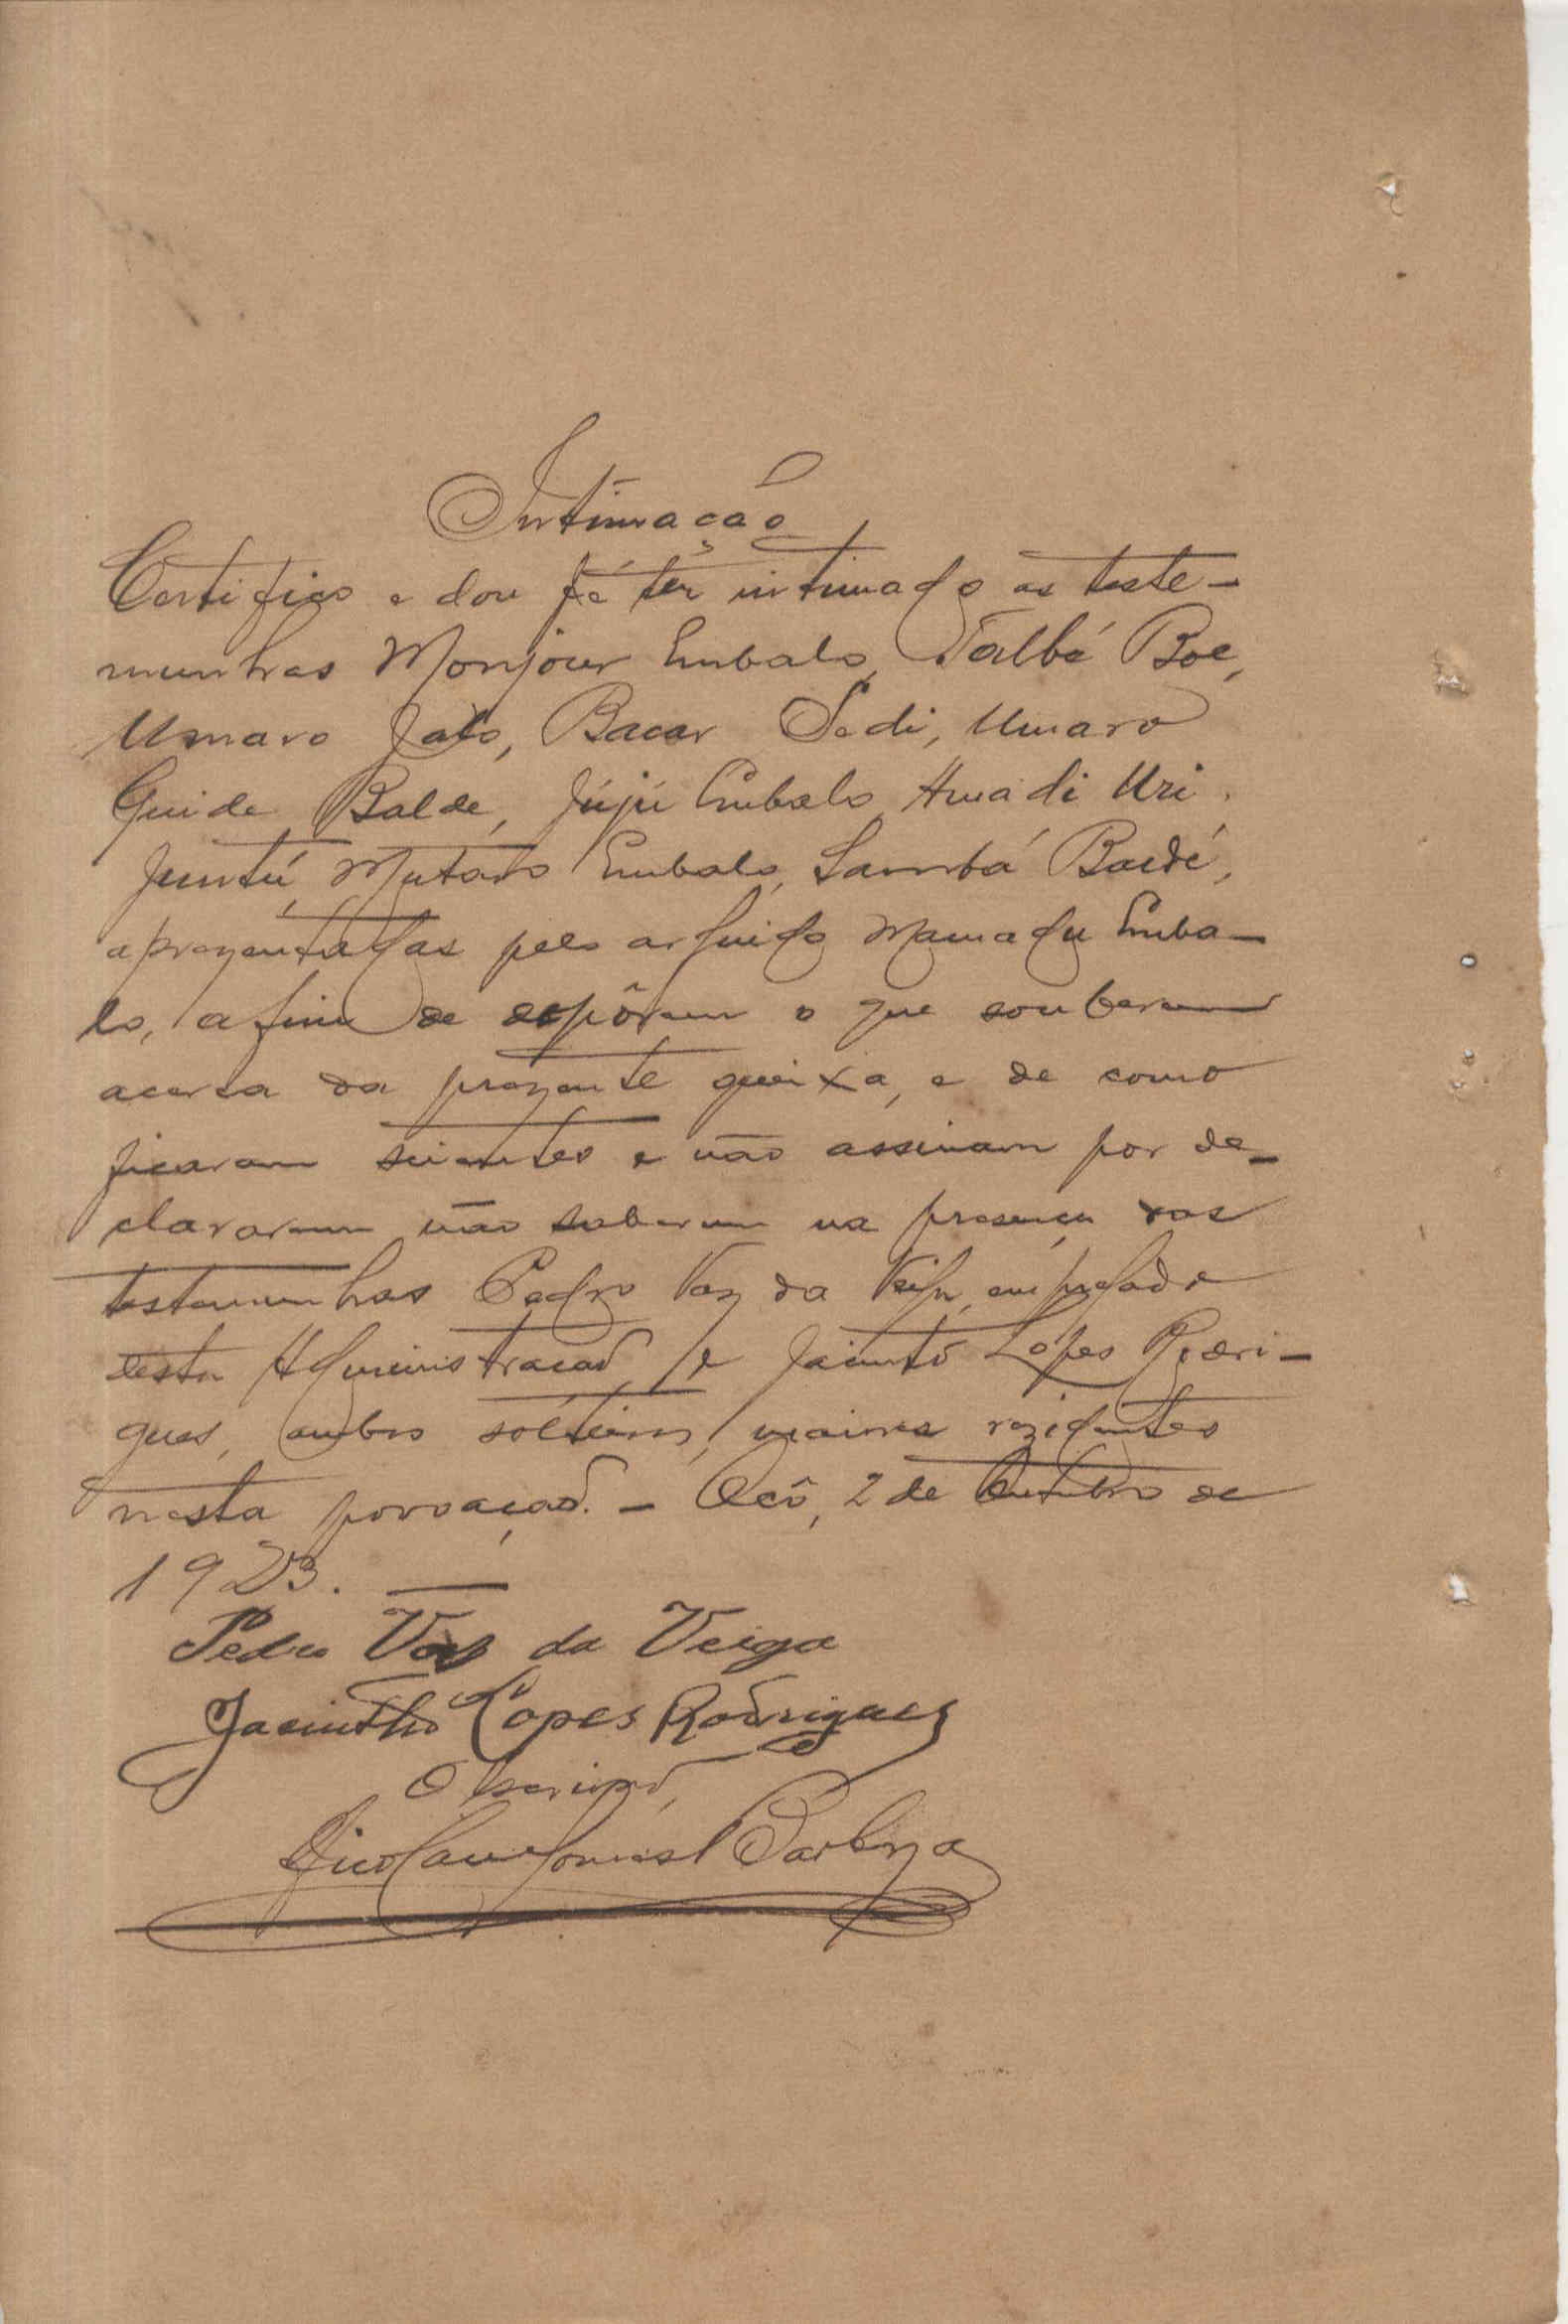 Intimação
Certifico e dou fé ter intimado as teste-
munhas Monjour Embalo, Talbé Boe,
Umaro Jaló, Bacar Sedi, Umaro
Guide Balde, Jújú Embalo, Amadi Uri,
Juntú, Mutaro Embalo, Sambá Baldé,
aprezentadas pelo arguido Mamadu Emba-
lo, a fim de depôrem o que souberem
acerca da prezente queixa, e de como
ficaram scientes e não assinam por de-
clararem não saberem na presença das
testemunhas Pedro Vaz da Veiga, empregado
desta Administracaõ, e Jacinto Lopes Rodri-
gues, ambos solteiros, maiores rezidentes
nesta povoaçaõ. - Oco, 2 de Outubro de
1923. —
Pedro Vaz da Veiga
Jacintho Lopes Rodrigues
O Escrivão,
Nicolau Gomes Barbosa